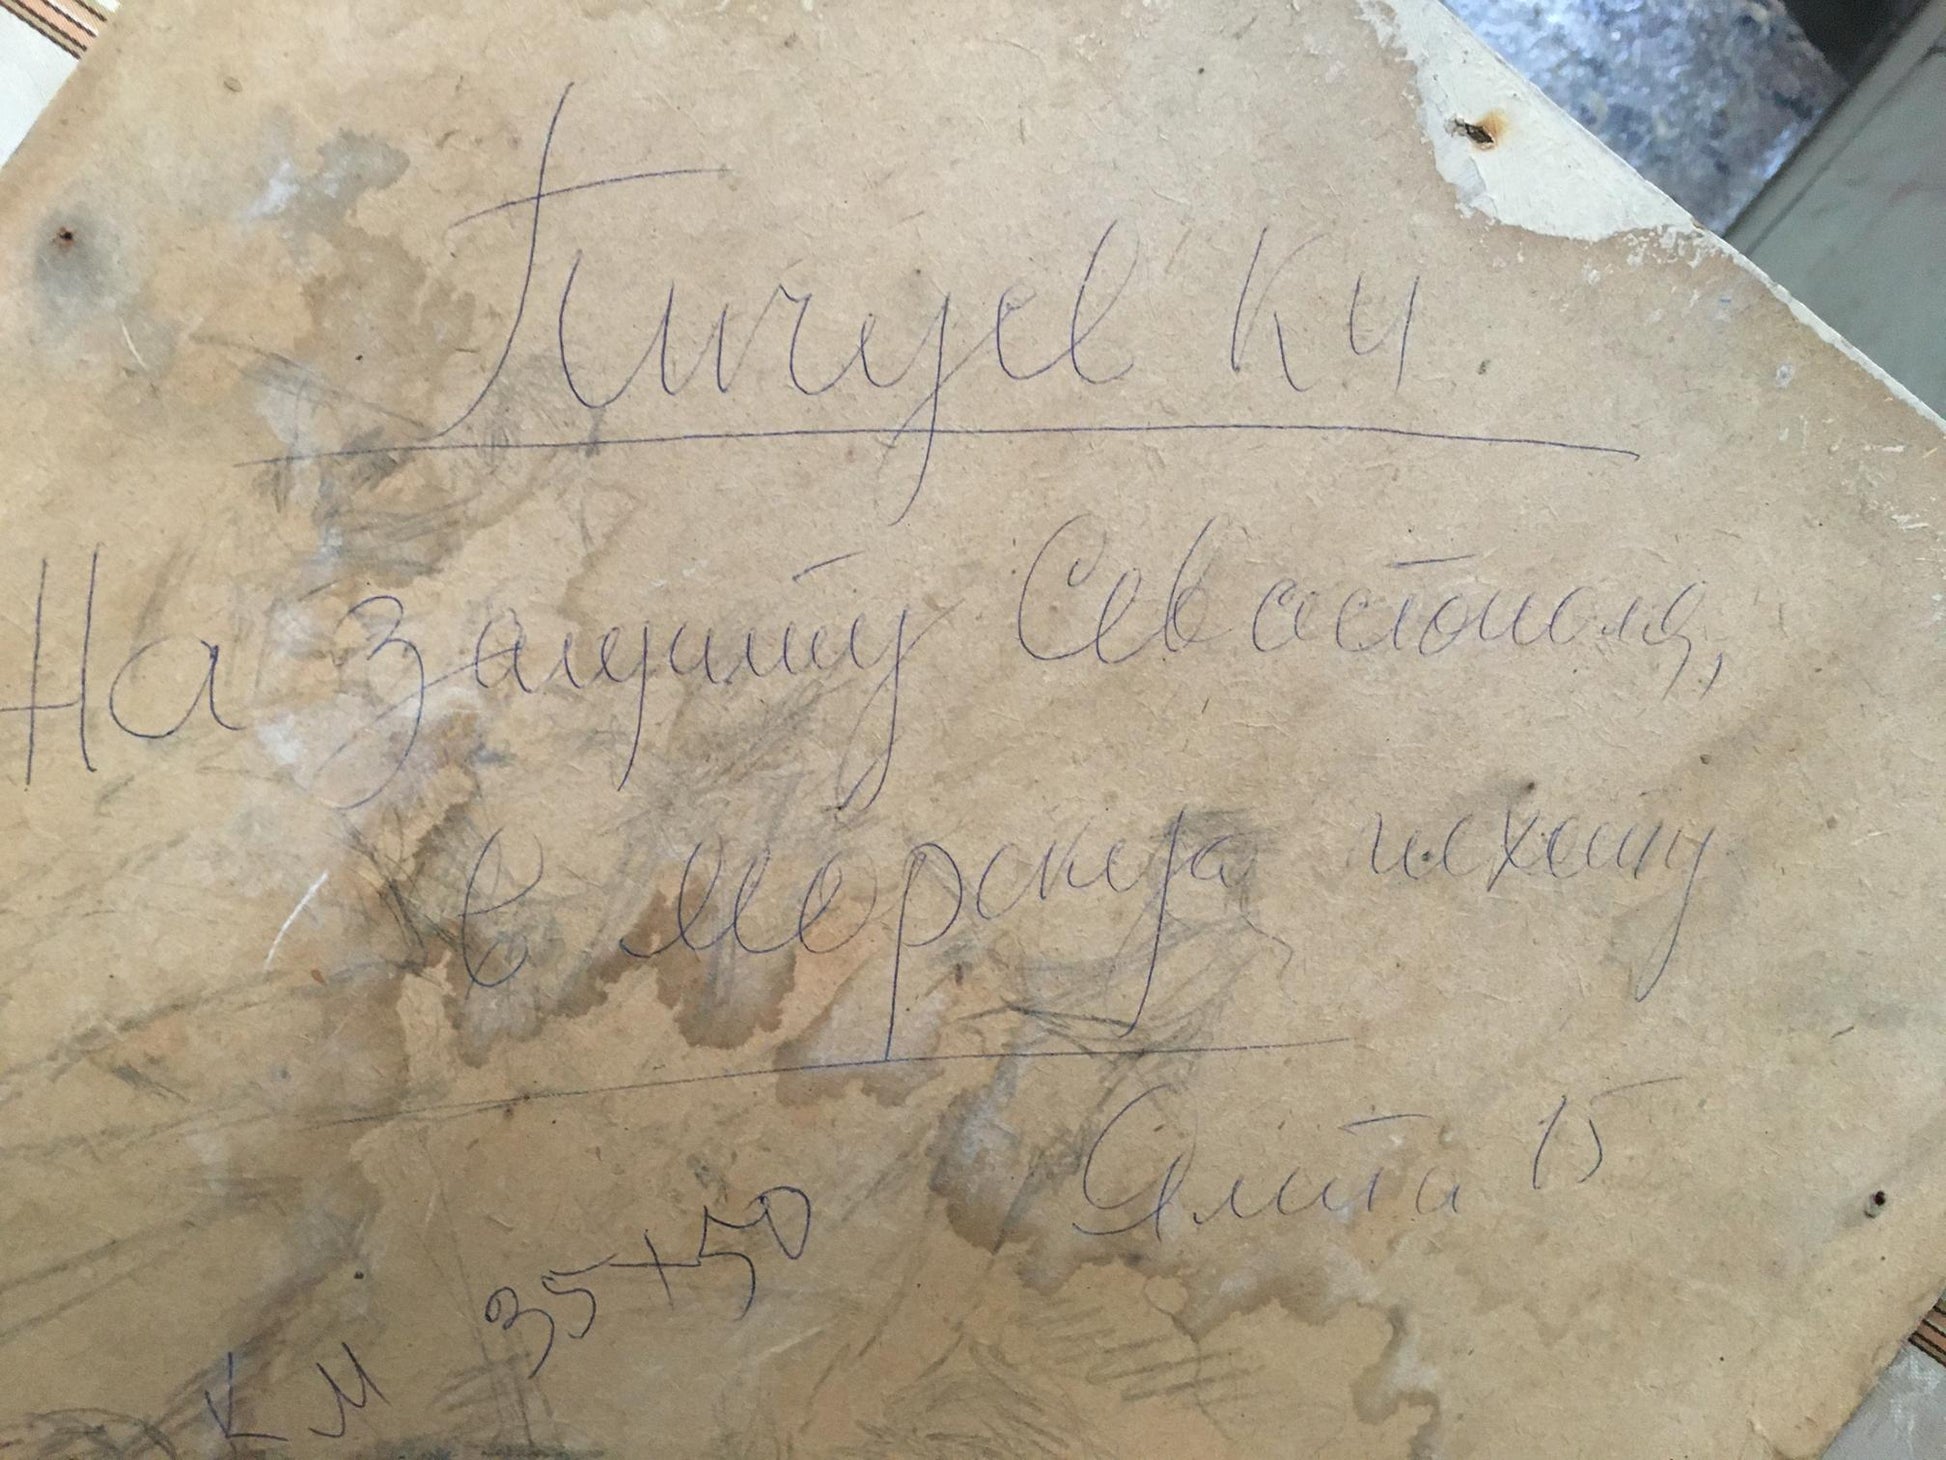 Пичуев КИ
На защиту Севастополя,
в морскую пехоту
Ялита 15
КМ 35х50